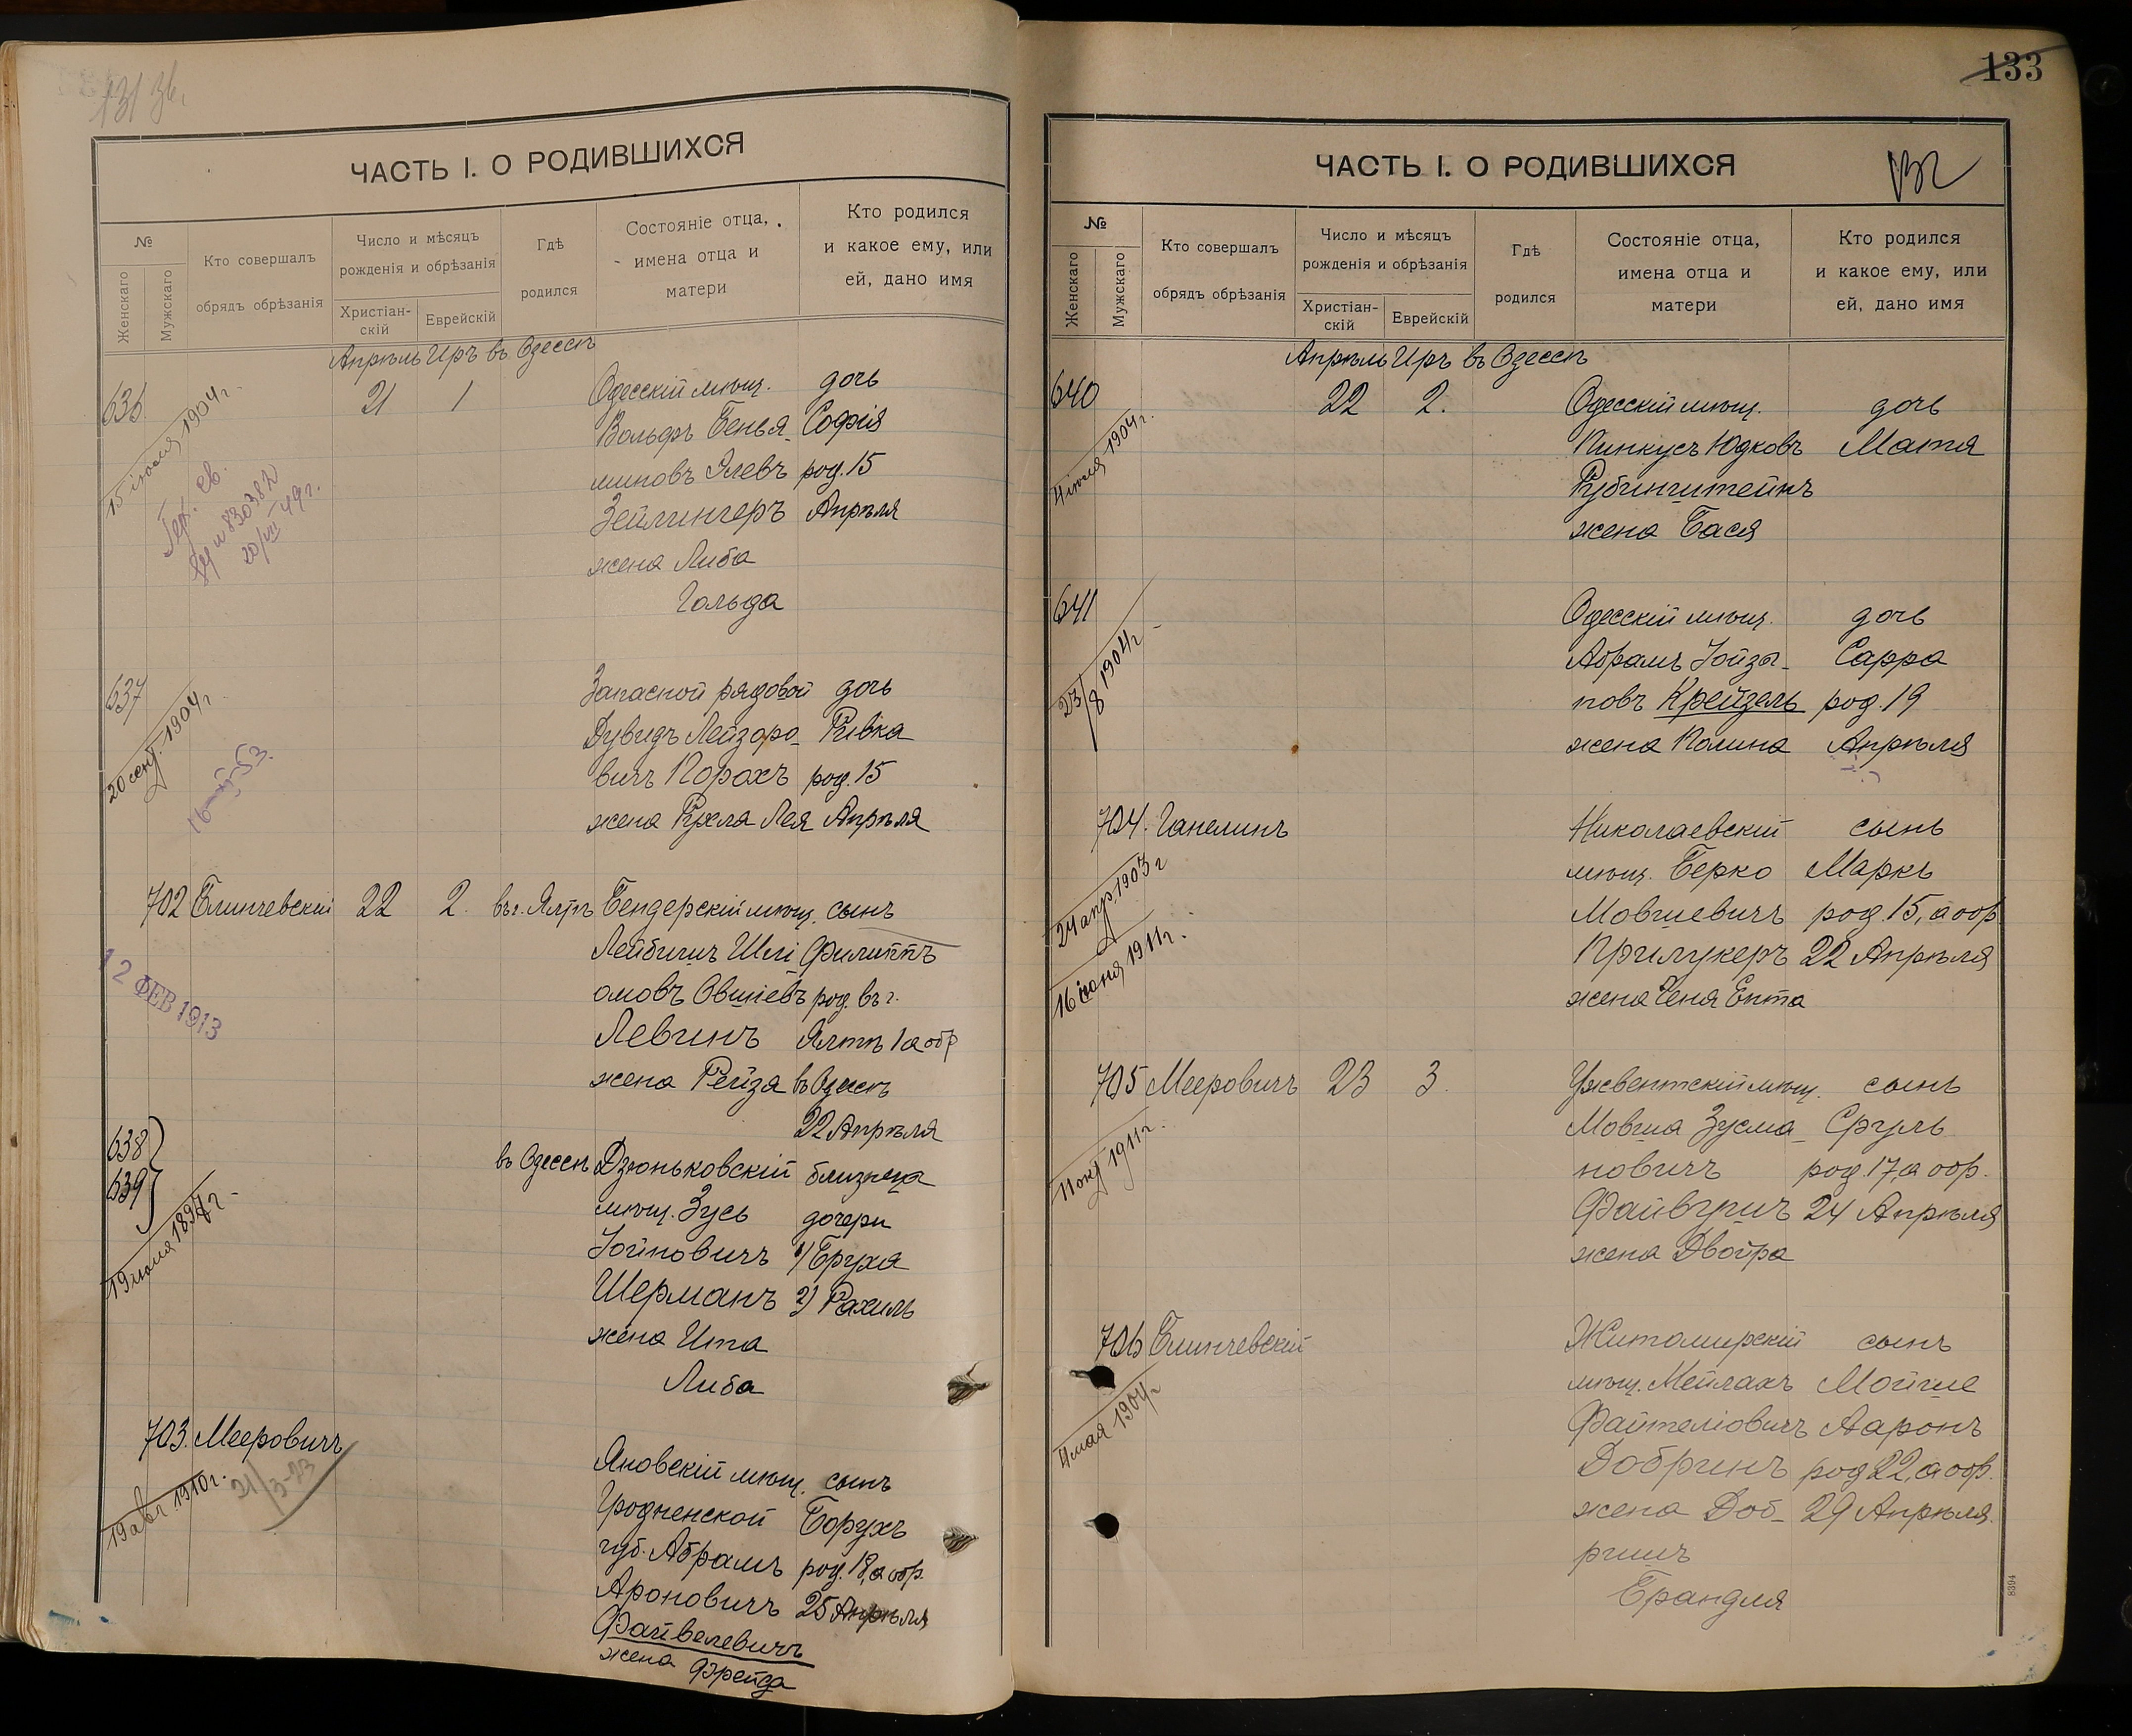 131 зв.
ЧАСТЬ I. О РОДИВШИХСЯ
№
Женскаго
Мужскаго
Кто совершалъ
обрядъ обрѣзанія
Число и мѣсяцъ
рожденія и обрѣзанія
Христіан-
скій
Еврейскій
Гдѣ
родился
Состояніе отца,
имена отца и
матери
Кто родился
и какое ему, или
ей, дано имя
Апрѣль Иръ въ Одессѣ
636
15 іюля 1904 г.
21 1
Одесскій мѣщ. дочь
Вольфъ Бенья- Софія
миновъЯлевъ род. 15
Зейлингеръ Апрѣля
жена Либа
Гольда
637
20 сент. 1904 г
Запасной рядовой дочь
Дувидъ Лейзоро- Ривка
вичъ Порохъ род. 15
жена Рухла Лея Апрѣля
702 Блинчевскій 22 2. въ г. Ялтѣ Бендерскій мѣщ. сынъ
12 ФЕВ 1913
Лейбишъ Шлі Филиппъ
омовъ Овшіевъ род. въ г.
Левгинъ Ялтѣ 1 а обр
жена Рейза въ Одессѣ
22 Апрѣля
638
639
19 іюля 1897 г.
въ Одессѣ Дзюньковскій близнеца
мѣщ. Зусь дочери
Іойновичъ 1) Бруха
Шерманъ 2) Рахиль
жена Ита
Либа
703. Мееровичъ
19 авг. 1910 г.
21/3-23
Яновскій мѣщ. сынъ
Гродненской Борухъ
губ. Абрамъ род. 18, а обр.
Ароновичъ 25 Апрѣля
Файвелевичъ
жена Фрейда
133
ЧАСТЬ I. О РОДИВШИХСЯ
132
№
Женскаго
Мужскаго
Кто совершалъ
обрядъ обрѣзанія
Число и мѣсяцъ
рожденія и обрѣзанія
Христіан-
скій
Еврейскій
Гдѣ
родился
Состояніе отца,
имена отца и
матери
Кто родился
и какое ему, или
ей, дано имя
Апрѣль Иръ въ Одессѣ
640
4 іюля 1904 г.
22 2.
Одесскій мѣщ. дочь
Пинкусъ Юдковъ Матя
Рубинштейнъ
жена Бася
641
23/8 1904 г
Одесскій мѣщ. дочь
Абрамъ Іойзы- Сарра
повъ Крейзель род. 19
жена Полина Апрѣля
704. Ганелинъ
24 апр. 1903 г
16 іюня 1911 г.
Николаевскій сынъ
мѣщ. Берко Маркъ
Мовшевичъ род. 15, а обр
Прилукеръ 22 Апрѣля
жена Геня Ента
705 Мееровичъ 23 3.
11 окт 1911 г.
Ужвентскій мѣщ. сынъ
Мовша Зусма- Сруль
новичъ род. 17, а обр.
Файвушъ 24 Апрѣля
жена Двойра
706 Блинчевскій
4 мая 1904 г
Житомирскій сынъ
мѣщ. Мейлахъ Мойше
Файтеліовичъ Ааронъ
Добринъ род 22, а обр.
жена Доб- 29 Апрѣля.
ришъ
Брандля
8394